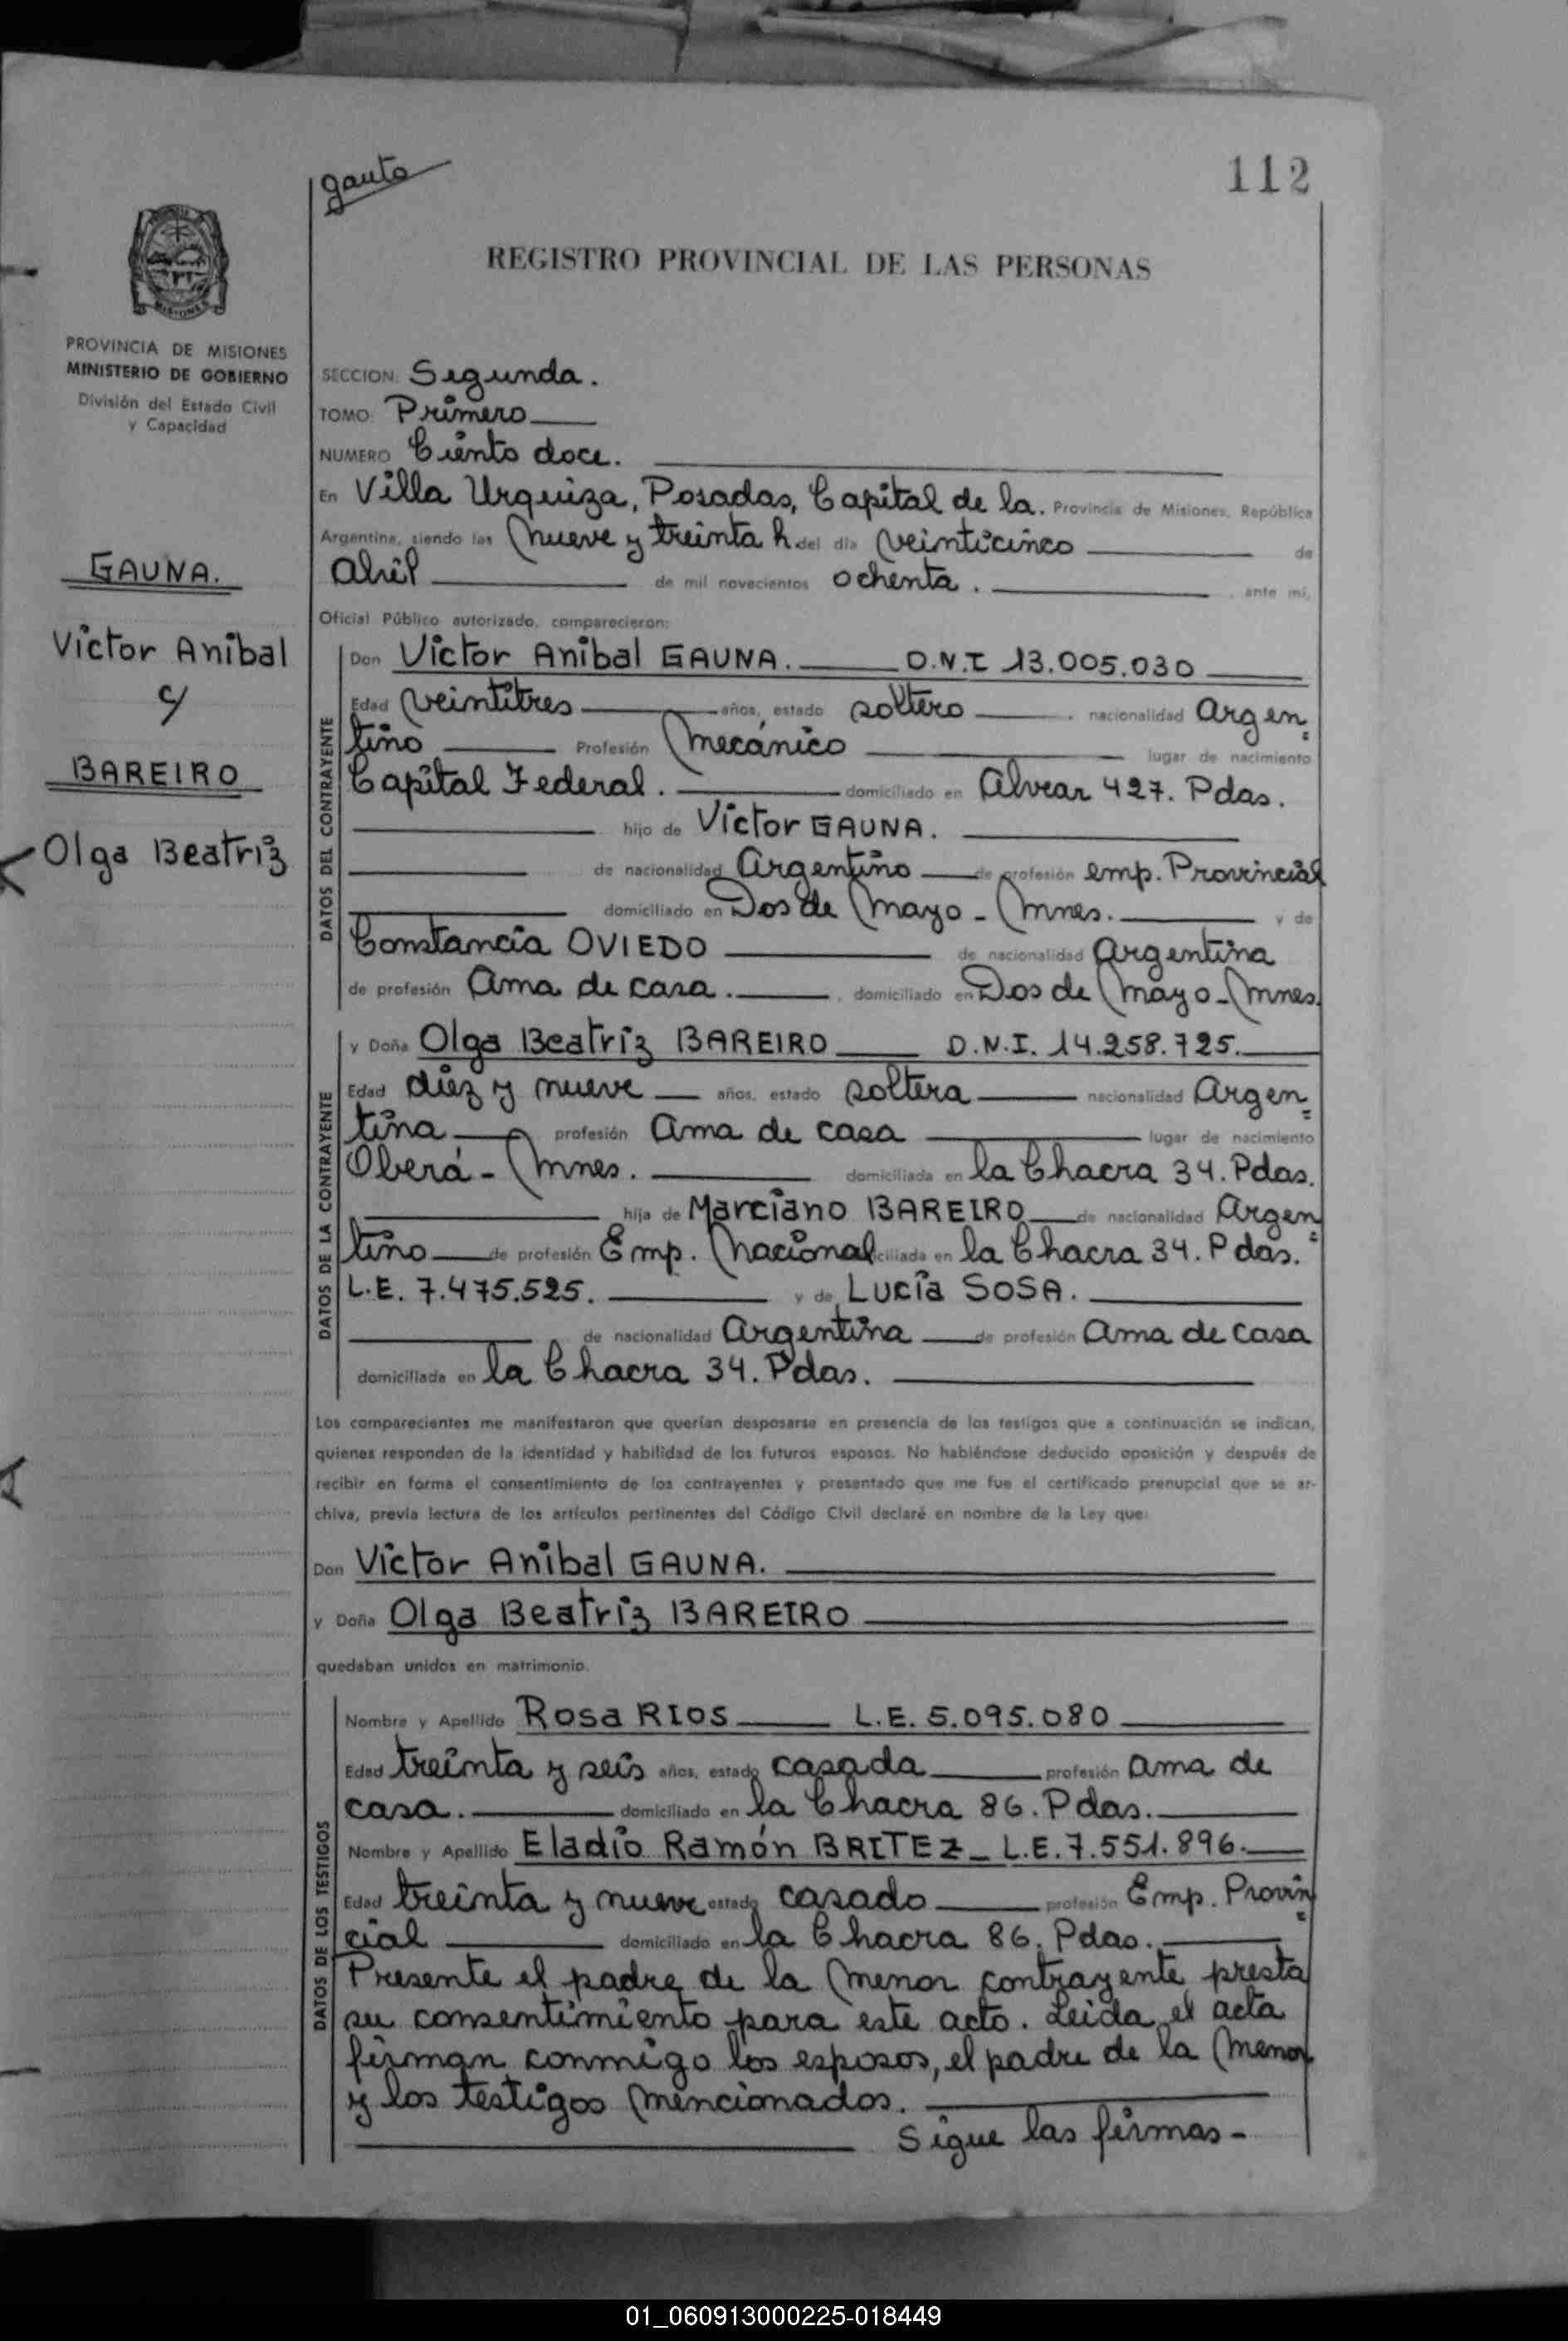 gauto
112
REGISTRO PROVINCIAL DE LAS PERSONAS
MISIONES
PROVINCIA DE MISIONES
MINISTERIO DE GOBIERNO
División del Estado Civil
y Capacidad
GAUNA.
Victor Anibal
y
BAREIRO
Olga Beatriz
SECCION: Segunda.
TOMO: Primero
NUMERO Ciento doce.
En Villa Urquiza, Posadas, Capital de la. Provincia de Misiones, República
Argentina, siendo las nueve y treinta h. del día veinticinco de
abril de mil novecientos ochenta. , ante mí,
Oficial Público autorizado, comparecieron:
DATOS DEL CONTRAYENTE
Don Victor Anibal GAUNA. D.N.I 13.005.030
Edad veintitres años, estado soltero nacionalidad argen
tino Profesión mecánico lugar de nacimiento
Capital Federal. domiciliado en Alvear 427. Pdas.
hijo de Victor GAUNA.
de nacionalidad argentino de profesión emp. Provincial
domiciliado en Dos de Mayo - Mnes. y de
Constancia OVIEDO de nacionalidad argentina
de profesión ama de casa. , domiciliado en Dos de Mayo - Mnes.
DATOS DE LA CONTRAYENTE
y Doña Olga Beatriz BAREIRO D.N.I. 14.258.725.
Edad diez y nueve años, estado soltera nacionalidad argen
tina profesión ama de casa lugar de nacimiento
Oberá - Mnes. domiciliada en la Chacra 34. Pdas.
hija de Marciano BAREIRO de nacionalidad argen
tino de profesión Emp. Nacional ciliada en la Chacra 34. Pdas.
L.E. 7.475.525. y de Lucía SOSA.
de nacionalidad argentina de profesión ama de casa
domiciliada en la Chacra 34. Pdas.
Los comparecientes me manifestaron que querían desposarse en presencia de los testigos que a continuación se indican,
quienes responden de la identidad y habilidad de los futuros esposos. No habiéndose deducido oposición y después de
recibir en forma el consentimiento de los contrayentes y presentado que me fue el certificado prenupcial que se ar-
chiva, previa lectura de los artículos pertinentes del Código Civil declaré en nombre de la Ley que:
Don Victor Anibal GAUNA.
y Doña Olga Beatriz BAREIRO
quedaban unidos en matrimonio.
DATOS DE LOS TESTIGOS
Nombre y Apellido Rosa RIOS L.E. 5.095.080
Edad treinta y seis años, estado casada profesión ama de
casa. domiciliado en la Chacra 86. Pdas.
Nombre y Apellido Eladio Ramón BRITEZ - L.E. 7.551.896.
Edad treinta y nueve estado casado profesión Emp. Provin
cial domiciliado en la Chacra 86. Pdas.
Presente el padre de la menor contrayente presta
su consentimiento para este acto. Leida el acta
firman conmigo los esposos, el padre de la menor
y los testigos mencionados.
Sigue las firmas -
01_060913000225-018449